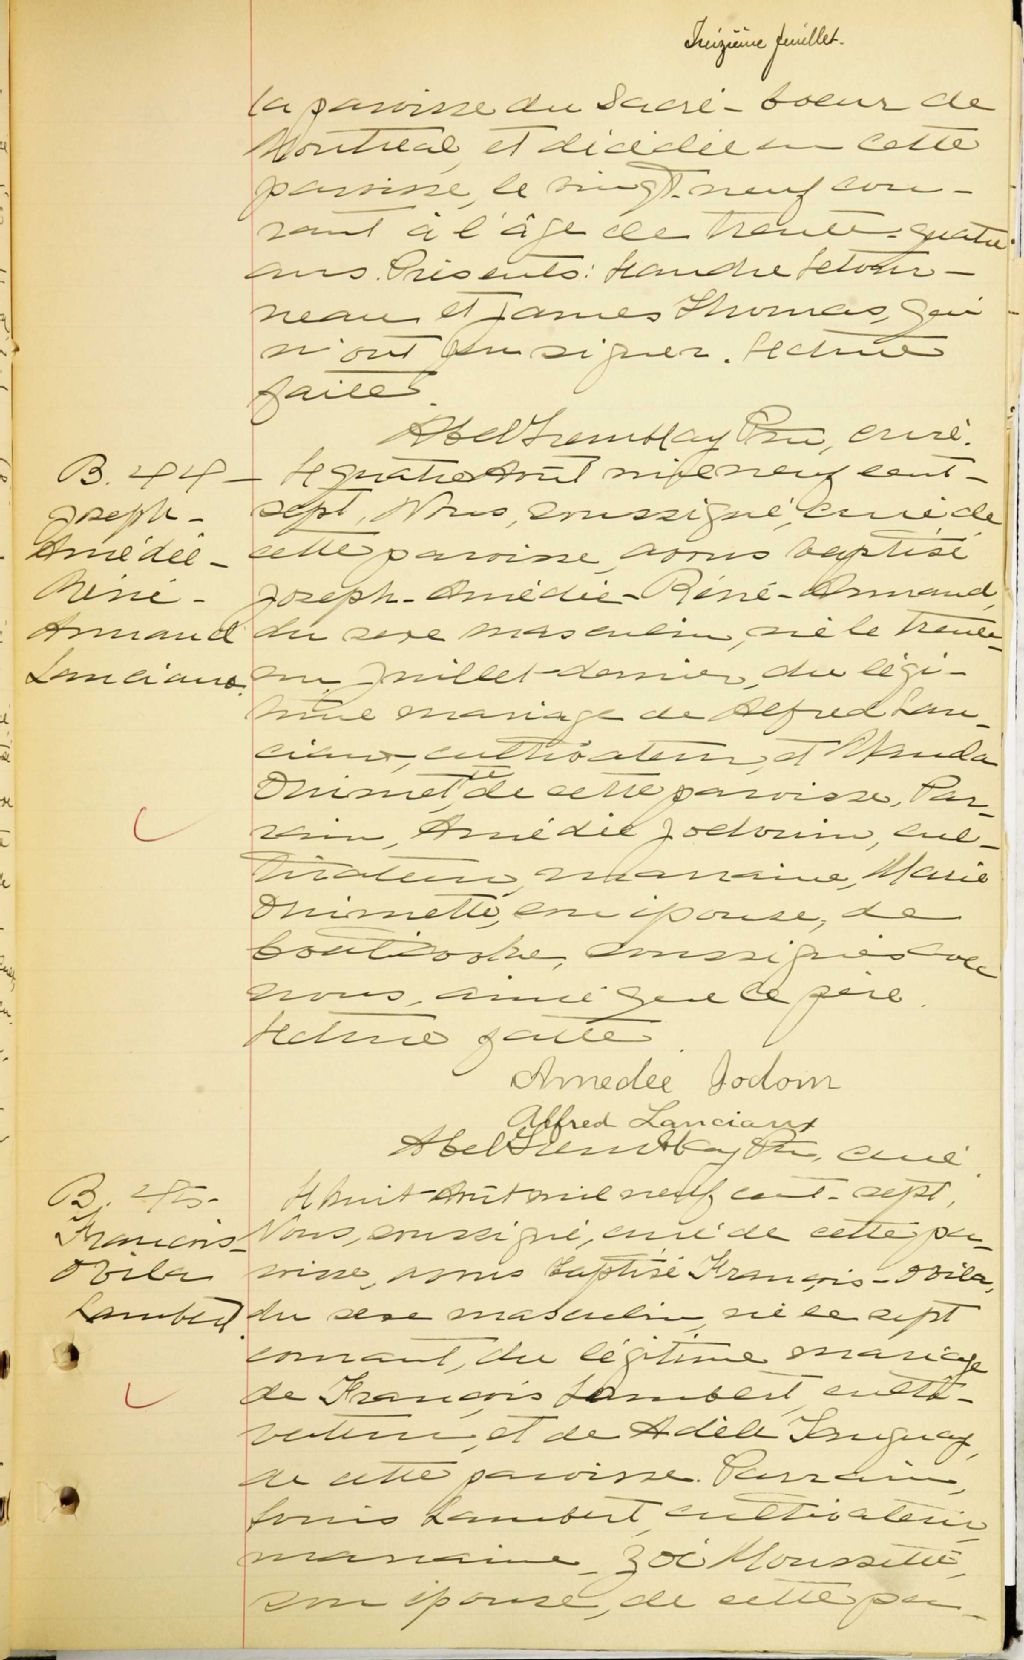 Treizième feuillet.
la paroisse du Sacré-Coeur de
Montréal, et décédée en cette
paroisse, le vingt-neuf cou-
rant à l'âge de trente-quatre
ans. Présents: Léandre Létour-
neau et James Thomas, qui
n'ont pu signer. Lecture
faite.
Abel Tremblay Ptre, curé.
B. 44 -
Joseph-
Amédée-
Réné-
Armand
Lanciaux.
Le quatre Août mil neuf cent-
sept, Nous, soussigné, curé de
cette paroisse, avons baptisé
Joseph-Amédée-Réné-Armand,
du sexe masculin, né le trente-
un Juillet dernier, du légi-
time mariage de Alfred Lan-
ciaux, cultivateur, et
Ouimette, de cette paroisse. Par-
rain, Amédée Jodouin, cul-
tivateur, marraine, Marie
Ouimette, son épouse, de
soussignés avec
nous, ainsi que le père.
Lecture faite
Amedée Jodoin
Alfred Lanciaux
Abel Tremblay Ptre, curé.
B. 45-
François-
Ovila
Lambert.
Le huit Août mil neuf cent-sept,
Nous, soussigné, curé de cette pa-
roisse, avons baptisé François-Ovila,
du sexe masculin, né le sept
courant, du légitime mariage
de François Lambert, culti-
vateur, et de Adèle
de cette paroisse. Parrain,
Louis Lambert, cultivateur,
marraine, Zoé Moussette,
son épouse, de cette pa-